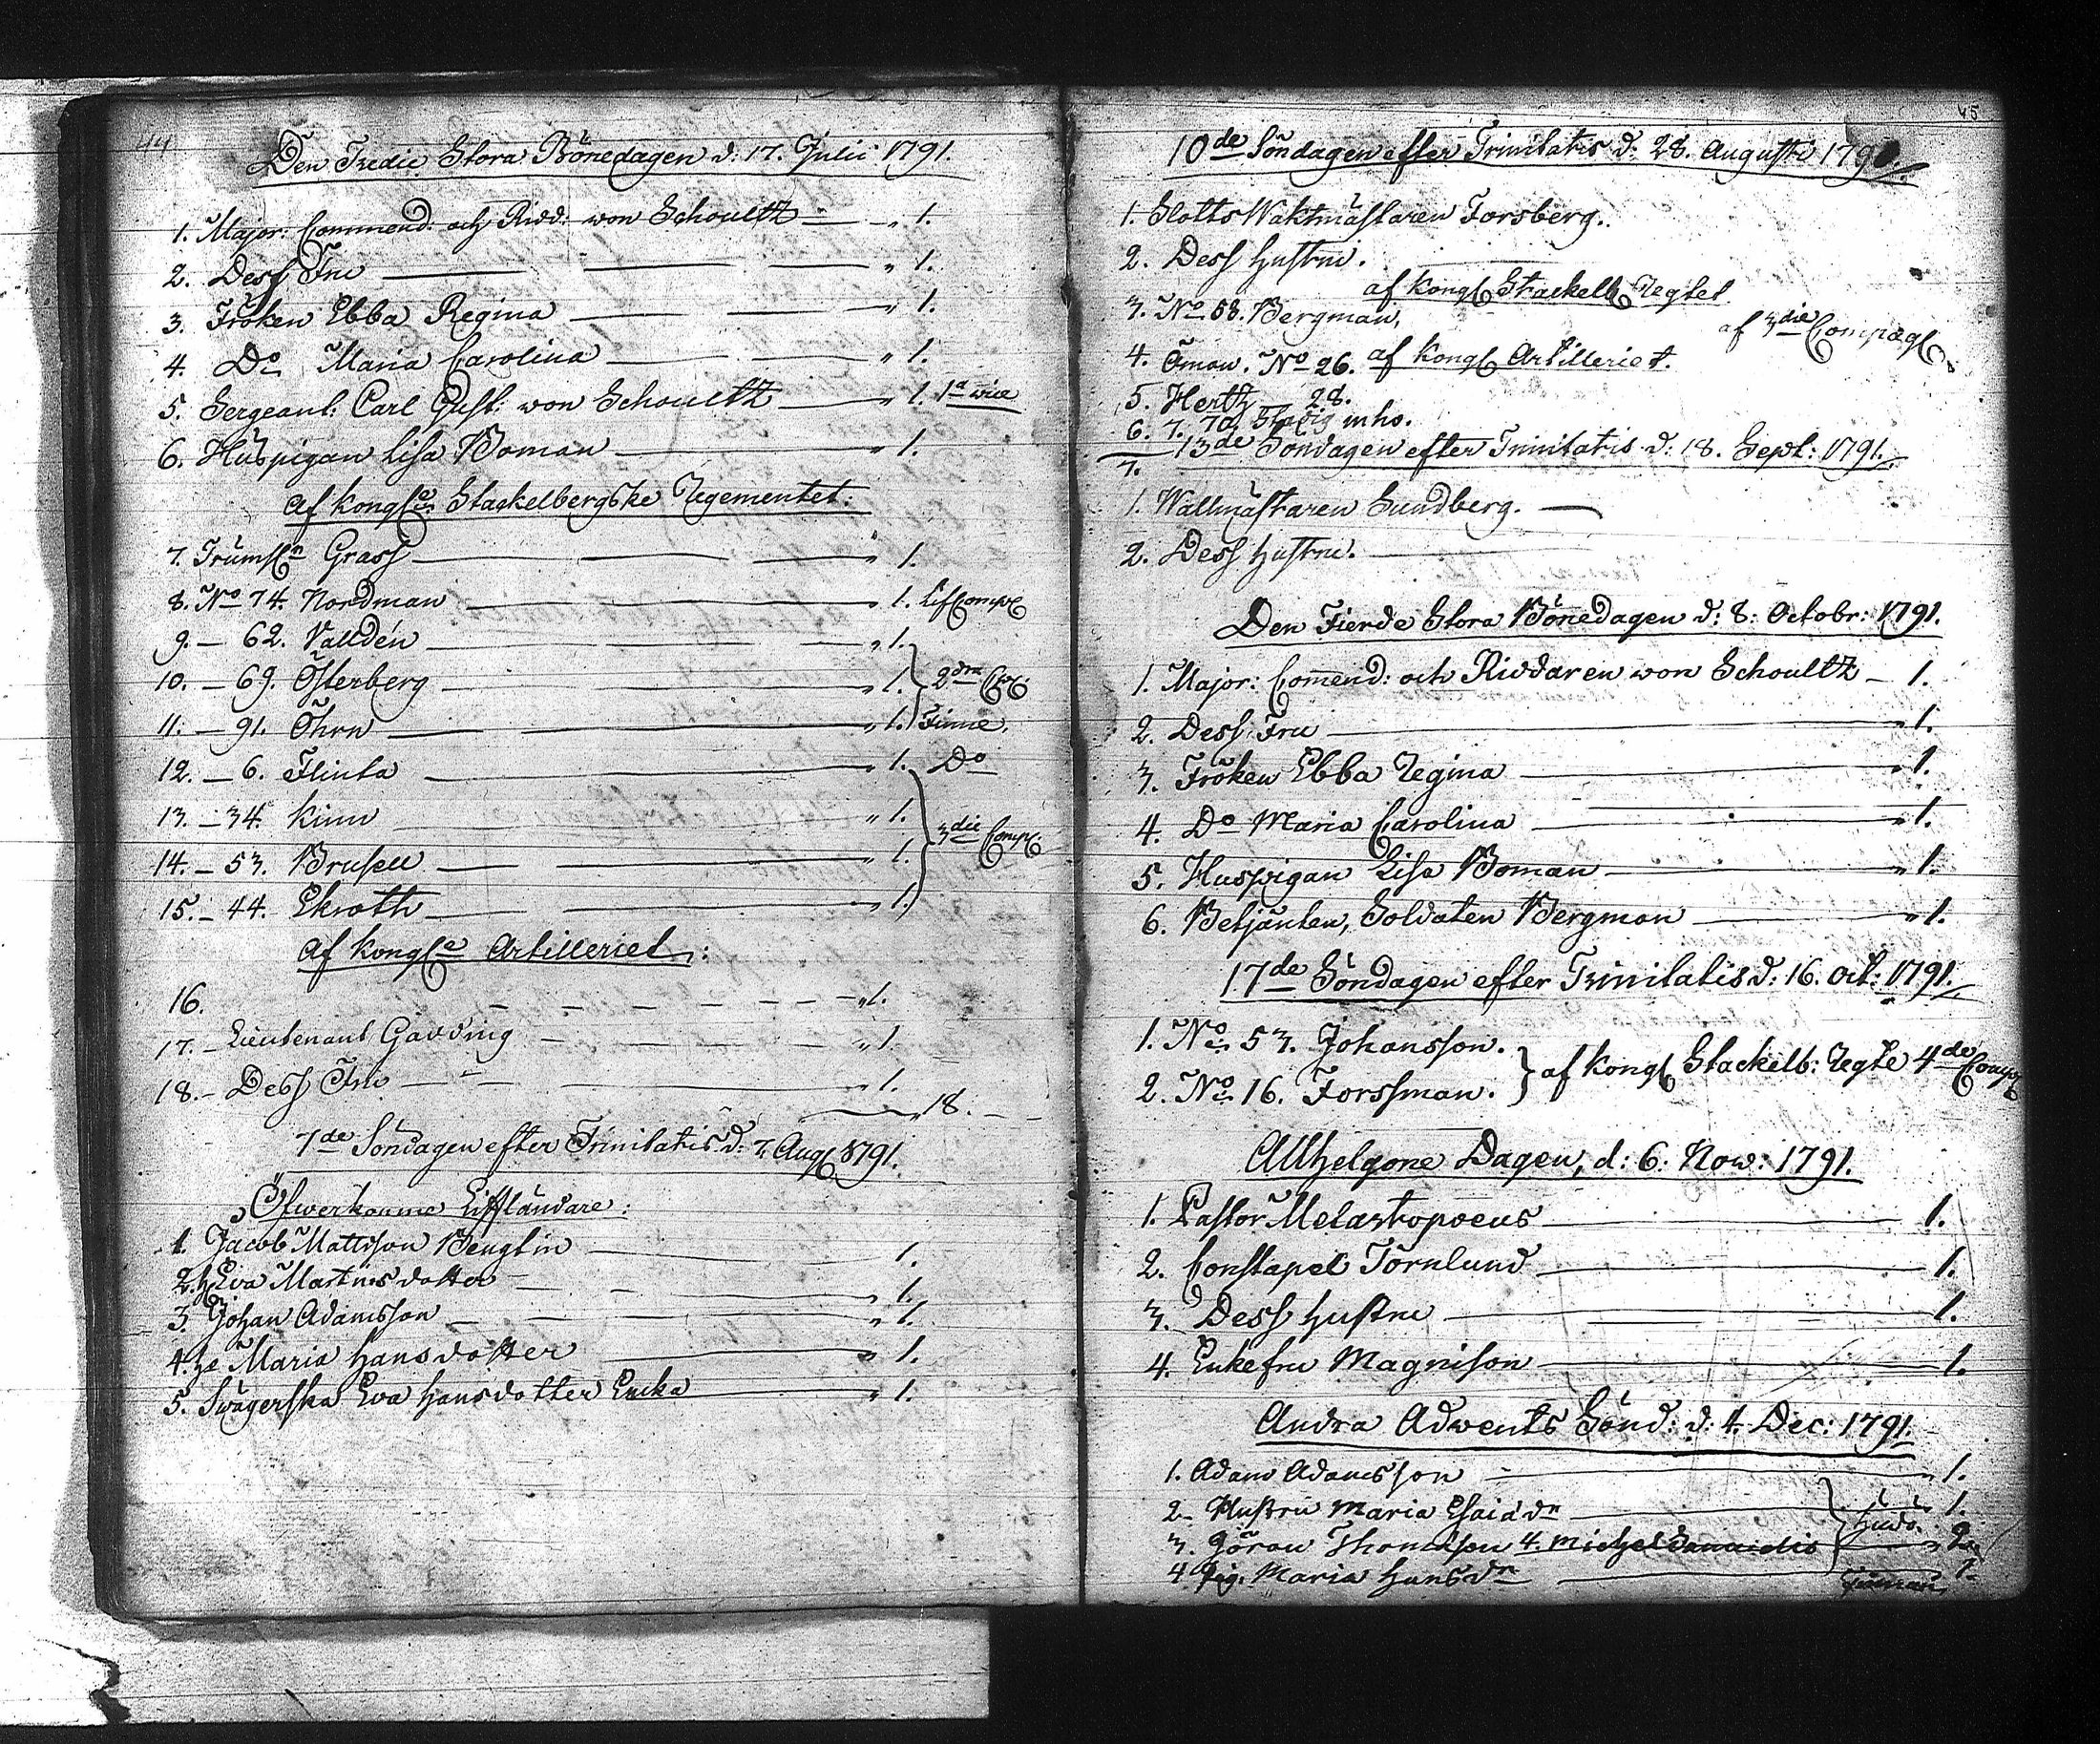 44
Den Tredie Stora Bönedagen d: 17. Julii 1791.
1. Major: Commend: och Ridd: von Schoultz — „ 1.
2. Dess Fru — „ 1.
3. Fröken Ebba Regina — „ 1.
4. Do Maria Carolina — „ 1.
5. Sergeant: Carl Gust: von Schoultz — „ 1. 1a
6. Huspigan Lisa Boman — „ 1.
af Kongl. Stackelbergske Regementet:
7. Grass — „ 1.
8. No 74. Nordman — „ 1. LifComp
9. — 62. Valldén — „ 1.
10. — 69. Österberg — „ 1. 2dra
11. — 91. Öhrn — „ 1. Finne.
12. — 6. Flinta — „ 1. Do
13. — 34. Kinn — „ 1.
14. — 53. — „ 1. 3die Comp
15. — 44. Ekroth — „ 1.
af Kongl. Artilleriet:
16. — „ 1.
17. — Lieutenant Gadding — „ 1.
18. — Dess Fru — „ 1.
„ 18. —
7de Söndagen efter Trinitatis d: 7. Aug 1791.
Öfwerkomne Lifländare:
1. Jacob Mattsson Benglin — 1.
2. Eva Martinsdotter — „ 1.
3. Johan Adamsson — „ 1.
4. Maria Hansdotter — „ 1.
5. Swägerska Eva Hansdotter Encka — „ 1.
45
10de Söndagen efter Trinitatis d: 28. Augusti 1791.
1. SlottsWaktmästaren Forsberg.
2. Dess Hustru.
af Kongl Stackelb Regtet
3. No 58. Bergman, af 3die Compagl
4. Öman. No 26. af Kongl Artilleriet.
5. Hertz — 28.
6. 7.
7.
13de Söndagen efter Trinitatis d: 18. Sept: 1791.
1. Wallmästaren Sundberg. —
2. Dess Hustru.
Den Fierde Stora Bönedagen d: 8: Octobr: 1791.
1. Major: Commend: och Riddaren von Schoultz — 1.
2. Dess Fru — „ 1.
3. Fröken Ebba Regina — „ 1.
4. Do Maria Carolina — „ 1.
5. Huspigan Lisa Boman — „ 1.
6. Betjänten, Soldaten Bergman — „ 1.
17de Söndagen efter Trinitatis d: 16. Oct: 1791.
1. No 53. Johansson.
2. No 16. Forssman. } af Kongl Stackelb: Regte 4de Comp
Allhelgone Dagen, d: 6: Now: 1791.
1. Pastor Melartopoeus — 1.
2. Constapel Törnlund — 1.
3. Dess Hustru — 1.
4. Enkefru Magnison — 1.
Andra Adwents Sönd: d: 4. Dec: 1791.
1. Adam Adamsson — „ 1.
2. Hustru Maria Esaiæ dr — „ 1.
3. Göran Thomasson 4. Michel
4. Pig. Maria Hansdr — 1.